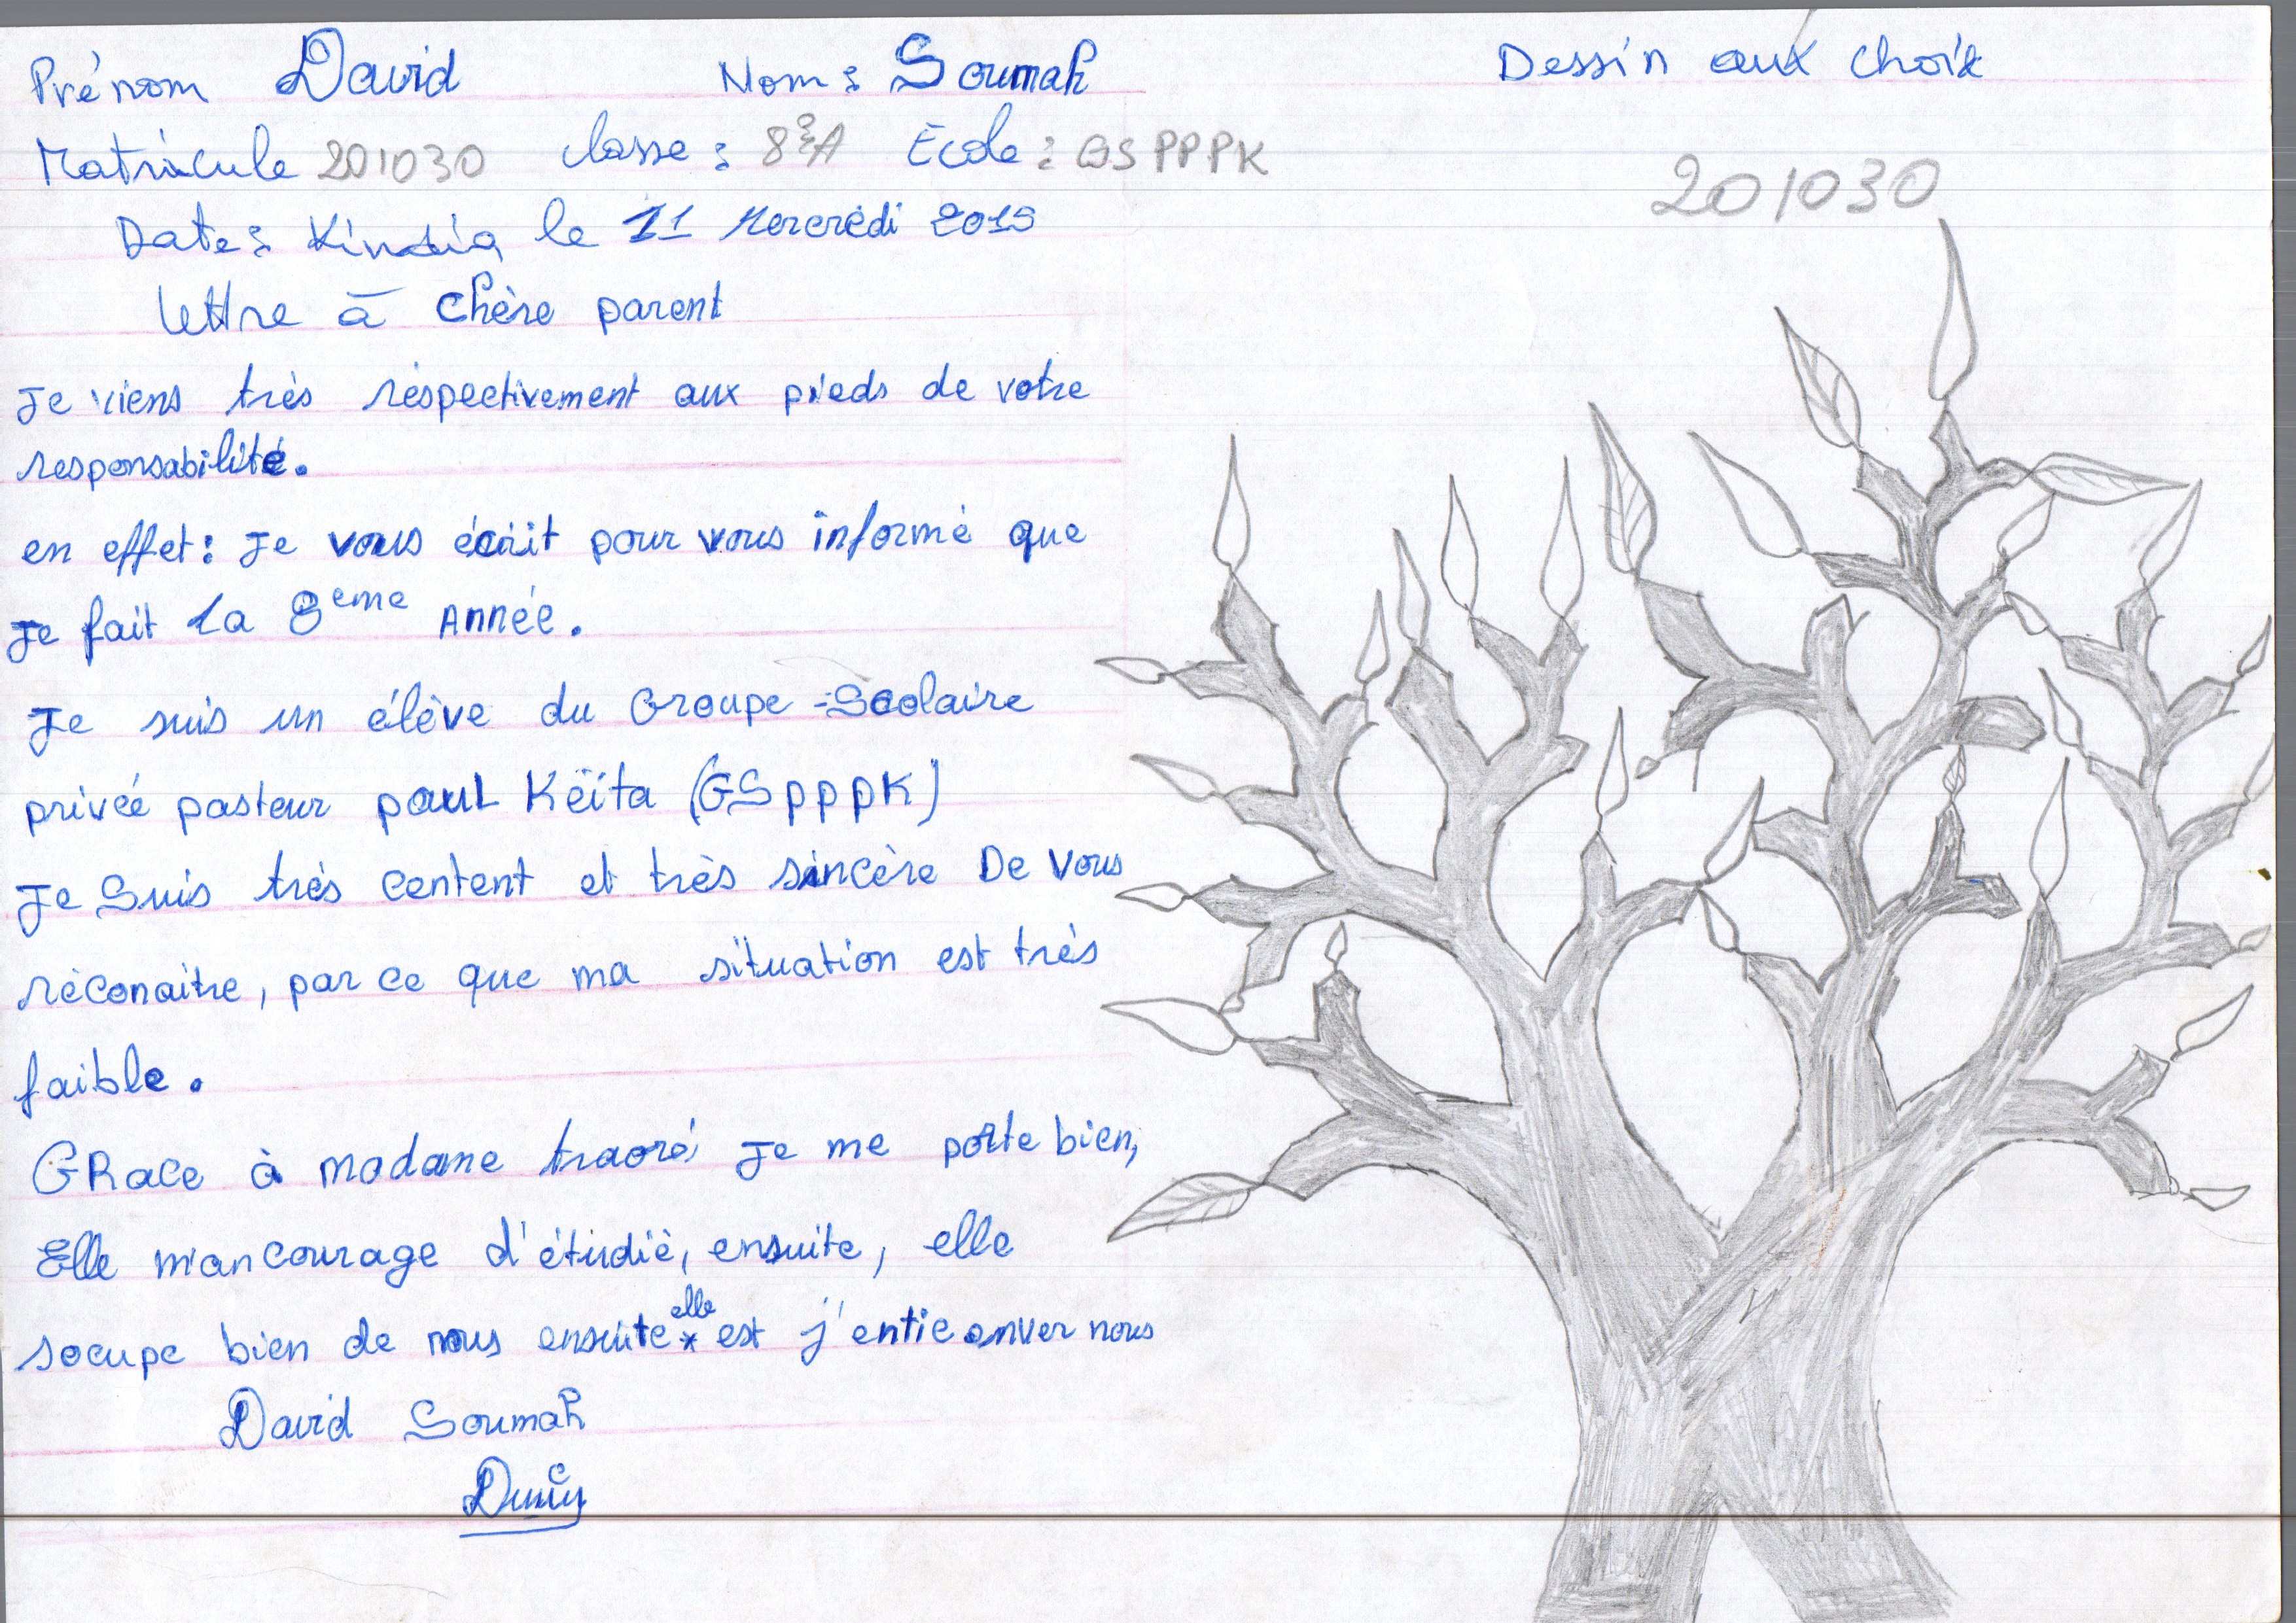 Prénom David Nom : Soumah
Matricule 201030 classe : 8è A École : GSPPPK
Date : Kindia le 11 Mercrédi 2015
lettre à chère parent
Je viens très réspectivement aux pieds de votre
responsabilité.
en effet : Je vous écrit pour vous informé que
Je fait la 8eme Année.
Je suis un élève du Groupe-Scolaire
privéé pasteur paul Kéïta (GSpppK)
Je Suis très content et très sincère De vous
réconaitre, par ce que ma situation est très
faible.
GRace à madame traoré Je me porte bien,
Elle m'ancourage d'étudié, ensuite, elle
socupe bien de nous ensuite * elle est j'entie enver nous
David Soumah
Dessin aux choix
201030